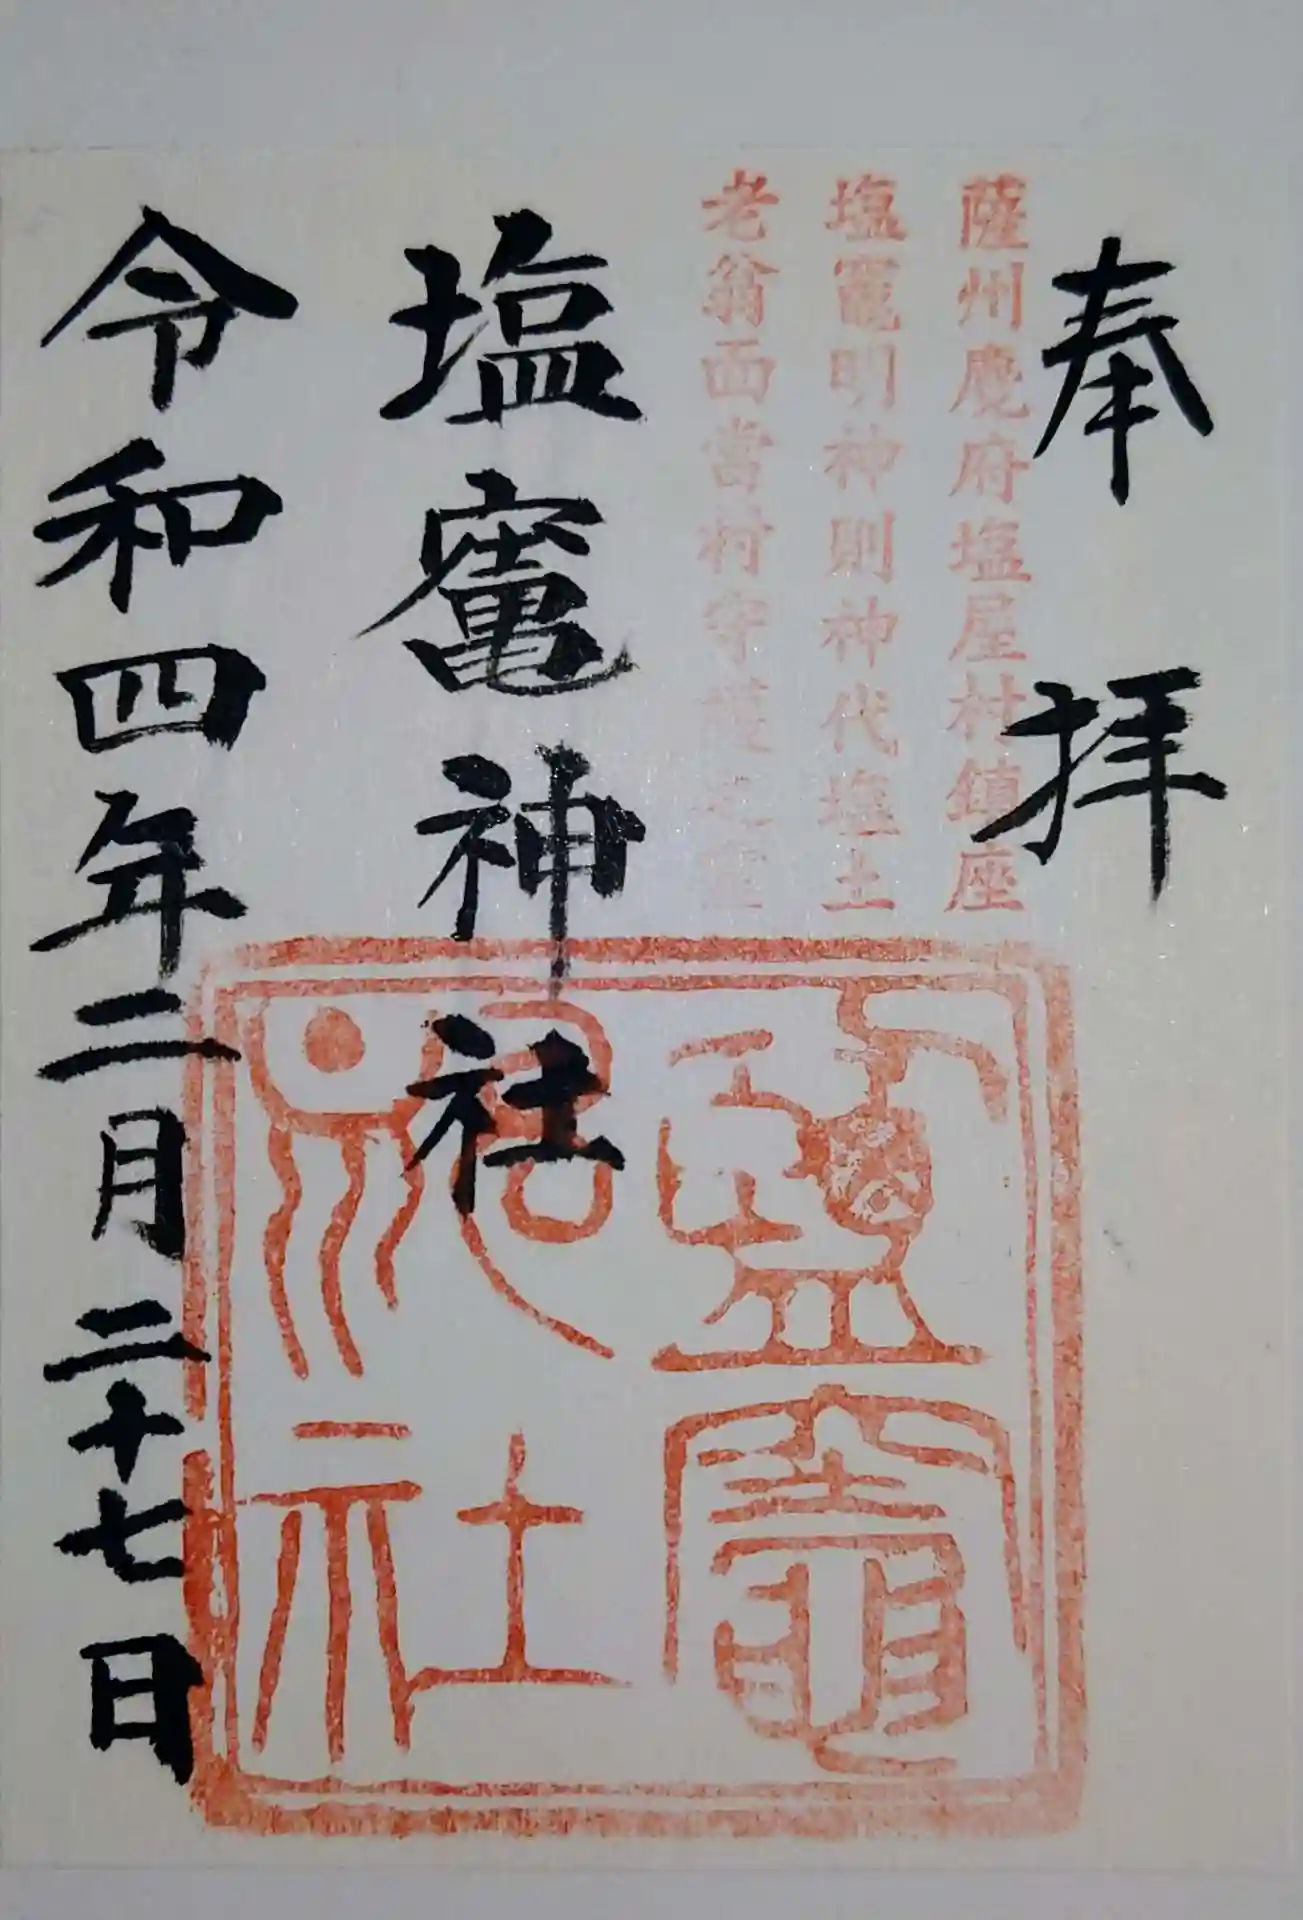 奉拝
薩州麑府塩屋村鎮座
塩竃明神則神代塩土
老翁而當村守護之霊
塩竃神社
令和四年二月二十七日
鹽竈神社